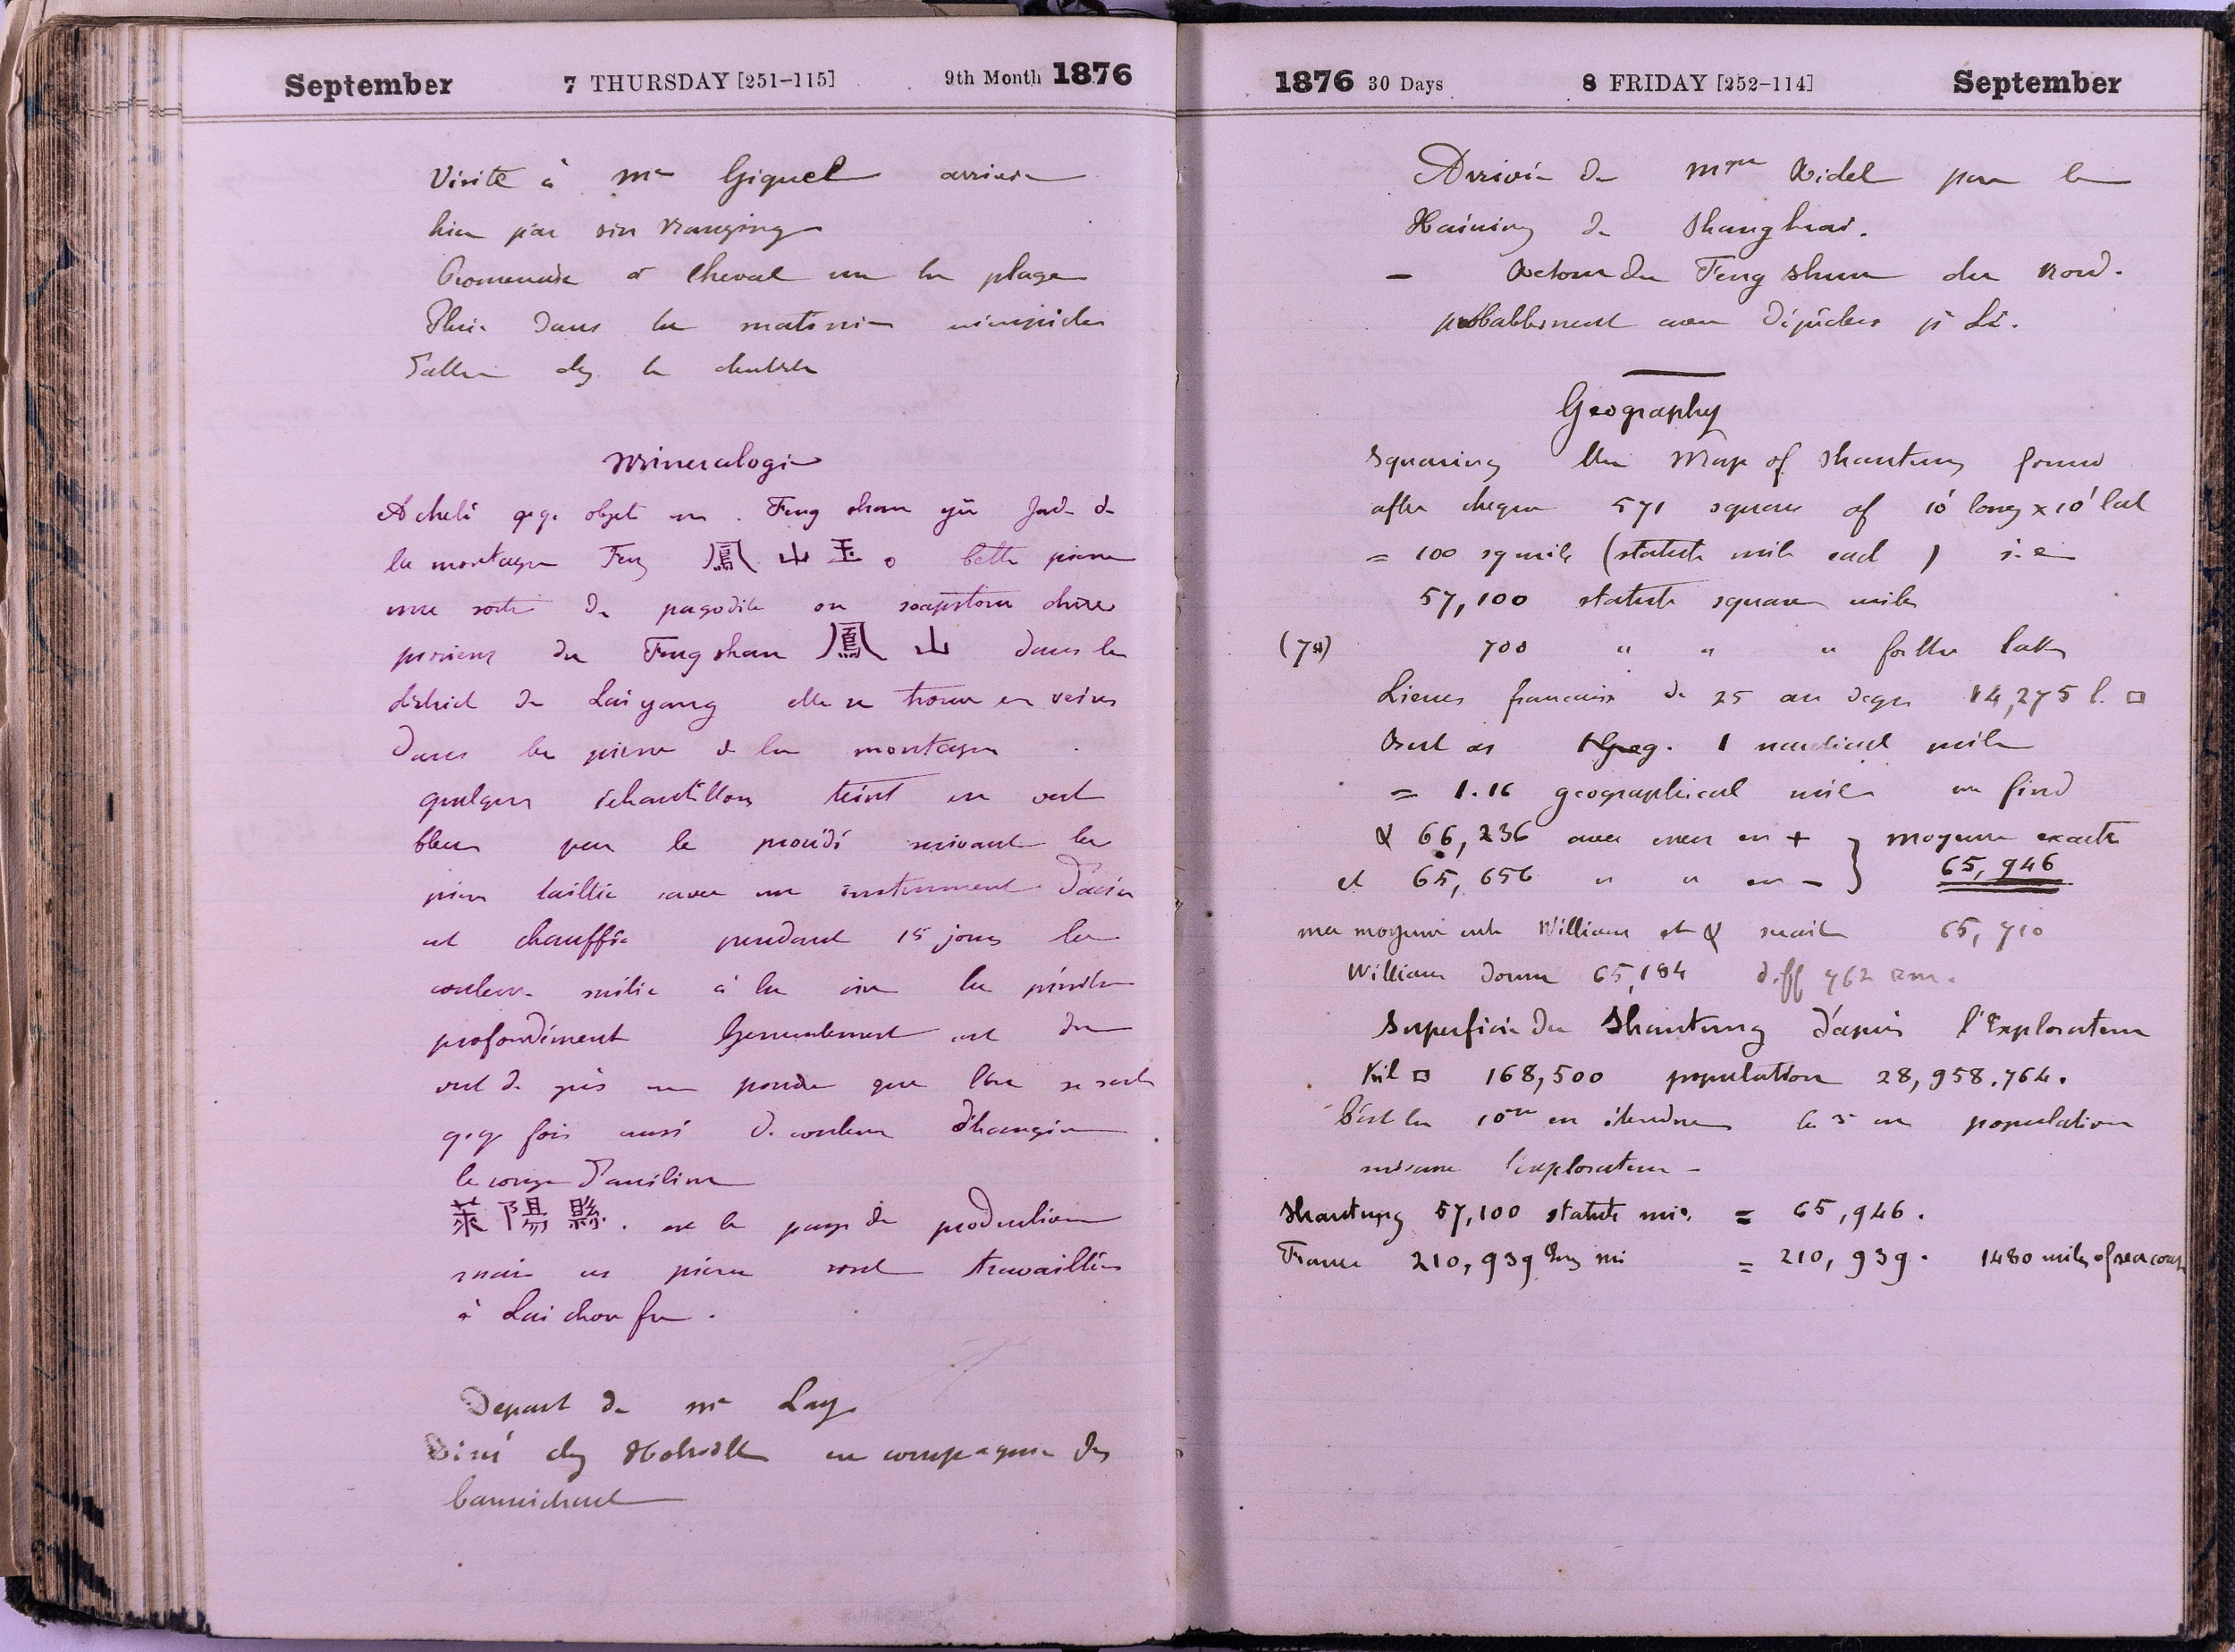 September 7 THURSDAY [251-115] 9th Month 1876
Visite à Mr Giquel arrivé
hier par sin Nanzing
Promenade à cheval sur la plage
Pluie dans la matinée
chez le
Mineralogie
Acheté qq. objets en Feng shan yü Jade de
la montagne Feng 鳳山玉。 Cette pierre
une sorte de pagodite ou soapstone
provient du Feng shan 鳳山 dans le
district de Laiyang elle se trouve en veines
dans la pierre de la montagne
quelques échantillons teint en vert
bleu par le procédé suivant la
pierre taillée avec un instrument d'acier
est chauffée pendant 15 jours la
couleur mêlée à la cire la pénètre
profondément Generalement est du
vert de gris en poudre que l'on se sert
q.q. fois aussi de couleur étrangère
le rouge d'aniline
萊陽縣. est le pays de production
mais ces pierres sont travaillées
à Lai chou fu.
Depart de Mr Lay
Diné chez en compagnie des
Carmichael
1876 30 Days 8 FRIDAY [252-114] September
Arrivée de Mgr Ridel par le
Haining de Shanghai.
- Retour du Feng Shun du Nord.
probablement avec dépêches pr Li.
Geography
Squaring the Map of Shantung found
after cheque 571 squares of 10' long x 10' lat
= 100 sq mile (statute mile each) i.e
57,100 statute square miles
(70) 700 " " " for the lakes
Lieues francaise de 25 au degré 14,275 l. □
But as 1 nautical mile
= 1.16 geographical mile we find
& 66,236 avec erreur en + } moyenne exacte
et 65,656 " " en - } 65,946
ma moyenne entre William et & serait 65,710
William donne 65,184 diff 762 em.
Superficie du Shantung d'après l'Explorateur
Kil □ 168,500 population 28,958.764.
C'est la 10me en étendue la 5 en population
mesure l'explorateur -
Shantung 57,100 statute mi. = 65,946.
France 210,939 Eng mi = 210,939. 1480 miles of sea coast